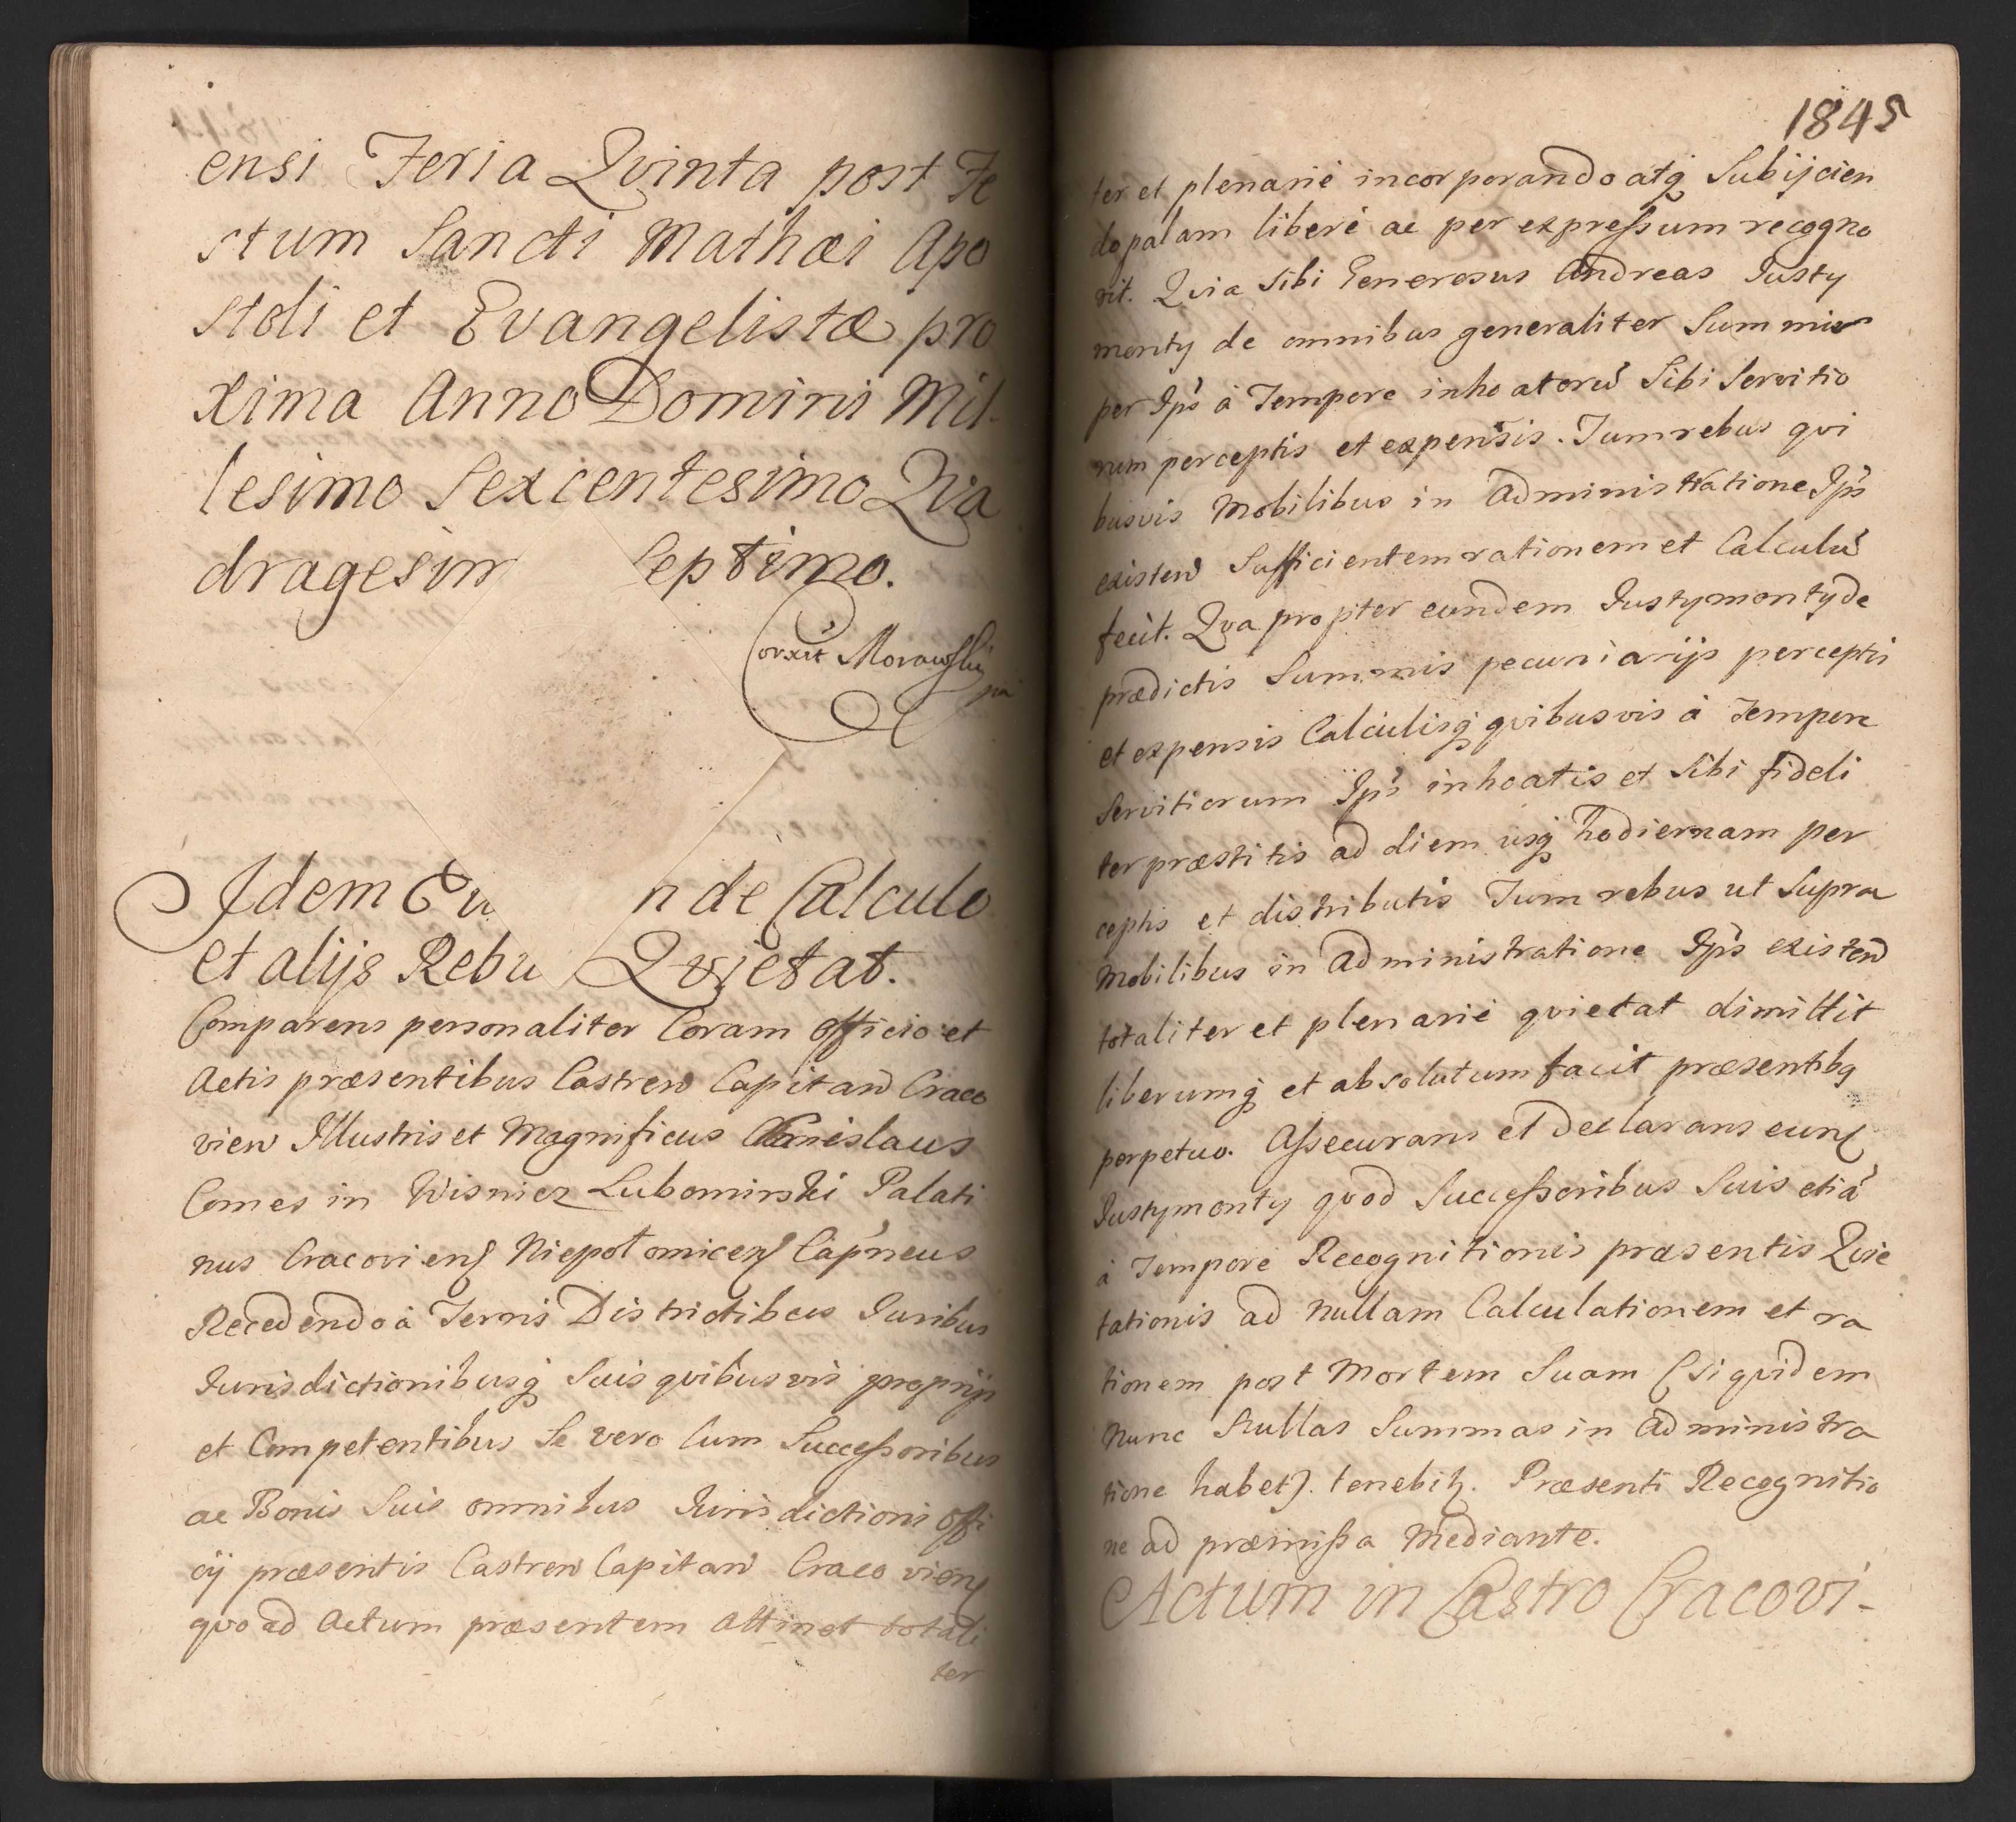 ensi Feria Qvinta post Fe
stum Sancti Mathæi Apo
stoli et Evangelistæ pro
xima Anno Domini Mil-
lesimo Sexcentesimo Qva
dragesim Septimo.
Corxit Morawski
Idem Eu n de Calculo
et alijs Rebu Qvietat.
Comparens personaliter Coram officio et
Actis præsentibus Castren Capitan Craco
vien Illustris et Magnificus Stanislaus
Comes in Wisnicz Lubomirski Palati
nus Cracovien Niepolomicen Capneus
Recedendo à Terris Districtibus Juribus
Jurisdictionibusq suis qvibusvis proprijs
et Competentibus Se vero cum Successoribus
ac Bonis Suis omnibus Jurisdictioni offi
cij præsentis Castren Capitan Cracovien
qvoad Actum præsentem attinet totali
ter
1845
ter et plenariè incorporando atq Subijcien
do palam liberè ac per expressum recogno
vit. Qvia Sibi Generosus Andreas Justy
monty de omnibus generaliter Summis
per Ips à Tempore inhoatorũ Sibi Servitio
rum perceptis et expensis. Tum rebus qvi
busvis Mobilibus in Administratione Ips
existen Sufficientem rationem et Calculũ
fecit. Qva propter eundem Justymonty de
prædictis Summis pecuniarijs perceptis
et expensis Calculisq qvibusvis à Tempore
Servitiorum Ips inhoatis et Sibi fideli
ter præstitis ad diem usq hodiernam per
ceptis et distributis Tum rebus ut Supra
Mobilibus in Administratione Ips existen
totaliter et plenariè qvietat dimittit
liberumq et absolutum facit præsentibq
perpetuo. Assecurans et Declarans eund
Justymonty qvod Successoribus Suis etiã
à Tempore Recognitionis præsentis Qvie
tationis ad nullam Calculationem et ra
tionem post Mortem Suam (siqvidem
Nunc Nullas Summas in Administra
tione habet). tenebit. Præsenti Recognitio
ne ad præmissa Mediante.
Actum in Castro Cracovi-